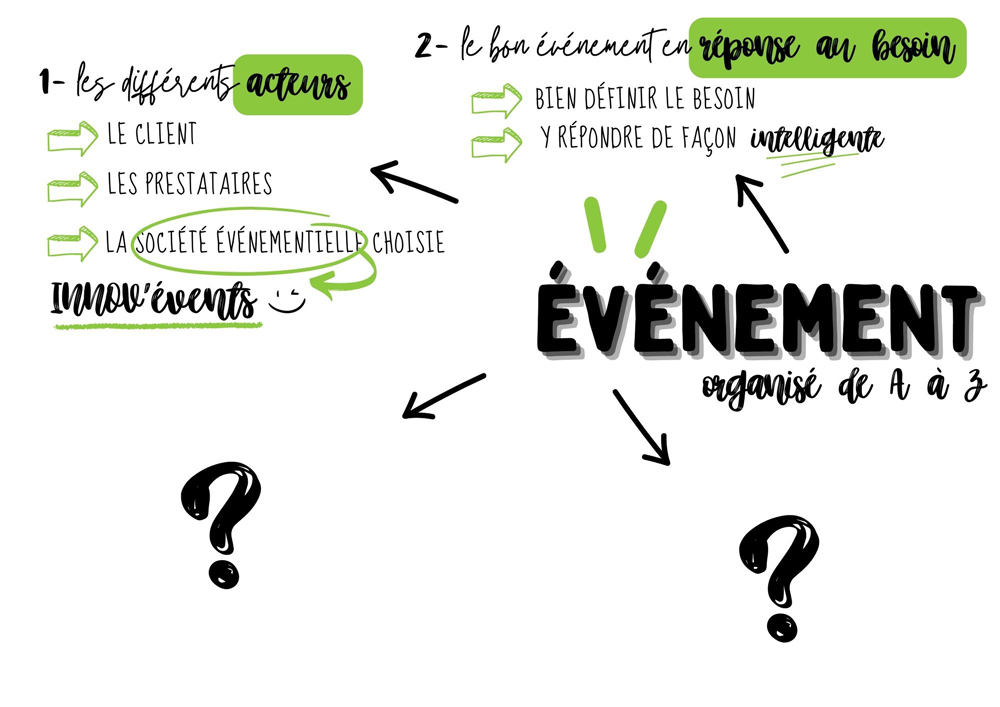 1- les différents acteurs
LE CLIENT
LES PRESTATAIRES
LA SOCIÉTÉ ÉVÉNEMENTIELLE CHOISIE
INNOV'évents
2- le bon événement en réponse au besoin
BIEN DÉFINIR LE BESOIN
Y RÉPONDRE DE FAÇON intelligente
ÉVÉNEMENT
organisé de A à Z
?
?